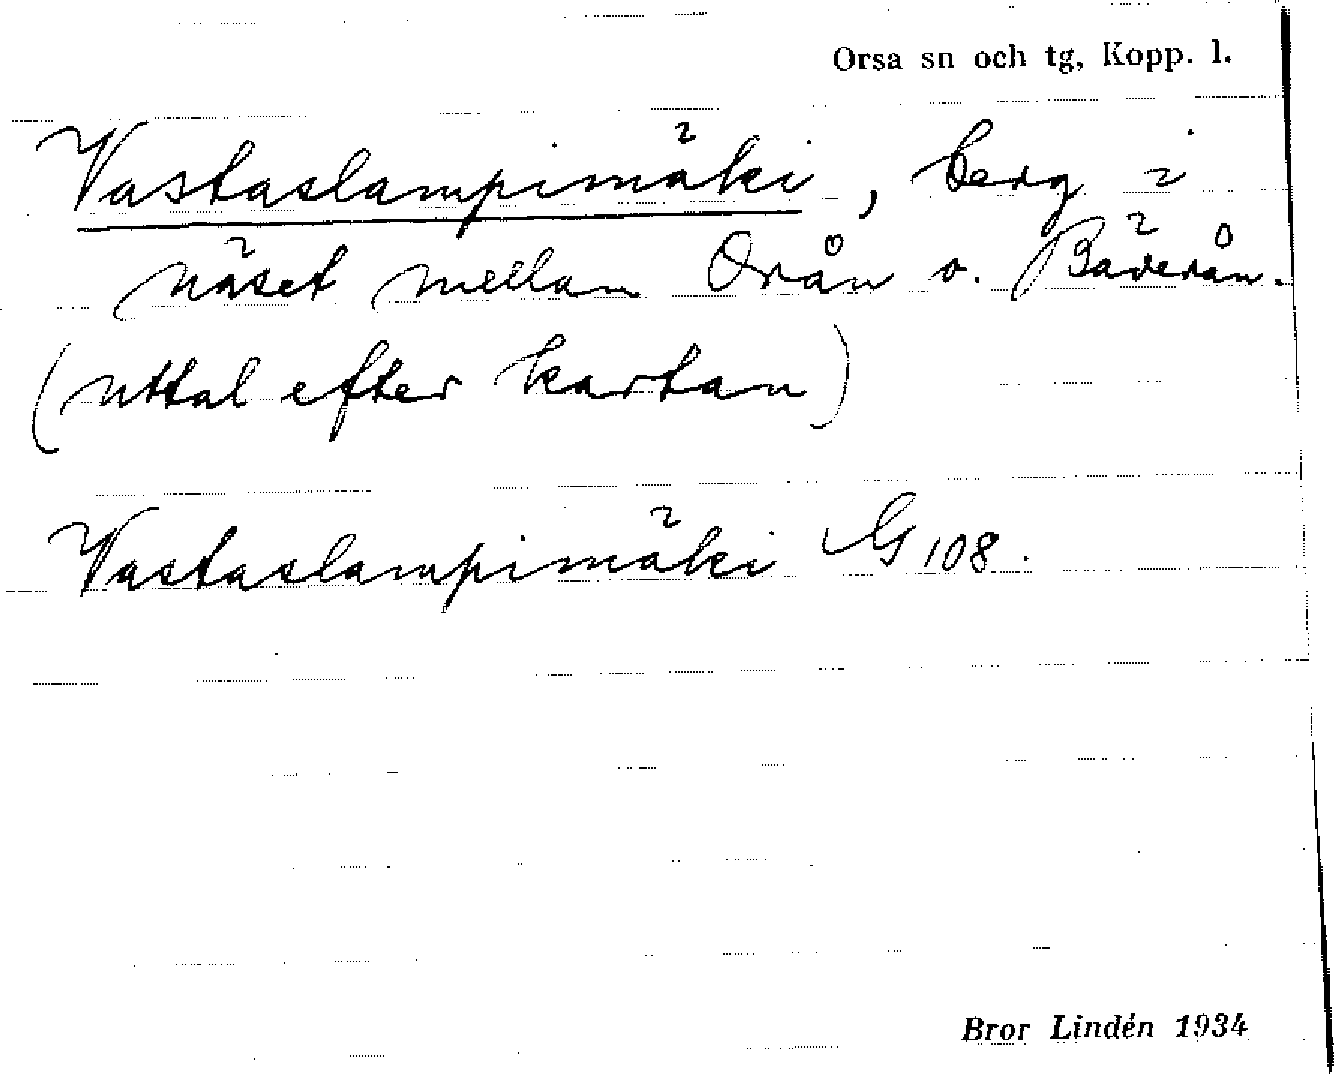 Orsa sn och tg, Kopp. l.
Vastaslampimäki, berg i
näset mellan Orån o. Bäverån.
(uttal efter kartan)
Vastaslampimäki G 108.
Bror Lindén 1934